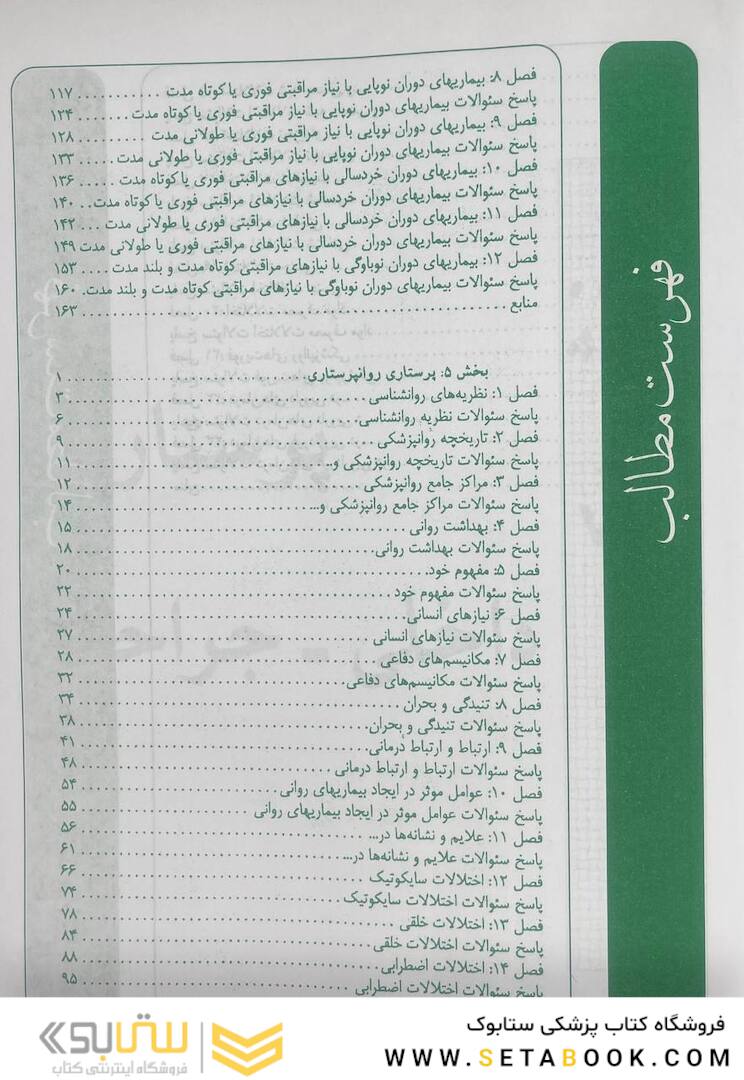 فهرست مطالب
فصل ۸: بیماریهای دوران نوپایی با نیاز مراقبتی فوری یا کوتاه مدت ............ ۱۱۷
پاسخ سئوالات بیماریهای دوران نوپایی با نیاز مراقبتی فوری یا کوتاه مدت ....... ۱۲۴
فصل ۹: بیماریهای دوران نوپایی با نیاز مراقبتی فوری یا طولانی مدت .......... ۱۲۸
پاسخ سئوالات بیماریهای دوران نوپایی با نیاز مراقبتی فوری یا طولانی مدت ..... ۱۳۳
فصل ۱۰: بیماریهای دوران خردسالی با نیازهای مراقبتی فوری یا کوتاه مدت ..... ۱۳۶
پاسخ سئوالات بیماریهای دوران خردسالی با نیازهای مراقبتی فوری یا کوتاه مدت.. ۱۴۰
فصل ۱۱: بیماریهای دوران خردسالی با نیازهای مراقبتی فوری یا طولانی مدت ... ۱۴۲
پاسخ سئوالات بیماریهای دوران خردسالی با نیازهای مراقبتی فوری یا طولانی مدت ۱۴۹
فصل ۱۲: بیماریهای دوران نوباوگی با نیازهای مراقبتی کوتاه مدت و بلند مدت .... ۱۵۳
پاسخ سئوالات بیماریهای دوران نوباوگی با نیازهای مراقبتی کوتاه مدت و بلند مدت. ۱۶۰
منابع .................... ۱۶۳
بخش ۵: پرستاری روانپرستاری .................... ۱
فصل ۱: نظریه‌های روانشناسی .................... ۳
پاسخ سئوالات نظریه روانشناسی .................... ۶
فصل ۲: تاریخچه روانپزشکی .................... ۹
پاسخ سئوالات تاریخچه روانپزشکی و... .................... ۱۱
فصل ۳: مراکز جامع روانپزشکی .................... ۱۲
پاسخ سئوالات مراکز جامع روانپزشکی و... .................... ۱۴
فصل ۴: بهداشت روانی .................... ۱۵
پاسخ سئوالات بهداشت روانی .................... ۱۸
فصل ۵: مفهوم خود .................... ۲۰
پاسخ سئوالات مفهوم خود .................... ۲۲
فصل ۶: نیازهای انسانی .................... ۲۴
پاسخ سئوالات نیازهای انسانی .................... ۲۷
فصل ۷: مکانیسم‌های دفاعی .................... ۲۸
پاسخ سئوالات مکانیسم‌های دفاعی .................... ۳۲
فصل ۸: تنیدگی و بحران .................... ۳۴
پاسخ سئوالات تنیدگی و بحران .................... ۳۸
فصل ۹: ارتباط و ارتباط درمانی .................... ۴۱
پاسخ سئوالات ارتباط و ارتباط درمانی .................... ۴۸
فصل ۱۰: عوامل موثر در ایجاد بیماریهای روانی .................... ۵۴
پاسخ سئوالات عوامل موثر در ایجاد بیماریهای روانی .................... ۵۵
فصل ۱۱: علایم و نشانه‌ها در... .................... ۵۶
پاسخ سئوالات علایم و نشانه‌ها در... .................... ۶۱
فصل ۱۲: اختلالات سایکوتیک .................... ۶۶
پاسخ سئوالات اختلالات سایکوتیک .................... ۷۴
فصل ۱۳: اختلالات خلقی .................... ۷۸
پاسخ سئوالات اختلالات خلقی .................... ۸۴
فصل ۱۴: اختلالات اضطرابی .................... ۸۸
پاسخ سئوالات اختلالات اضطرابی .................... ۹۵
فروشگاه کتاب پزشکی ستابوک
WWW.SETABOOK.COM
ستابوک
فروشگاه اینترنتی کتاب